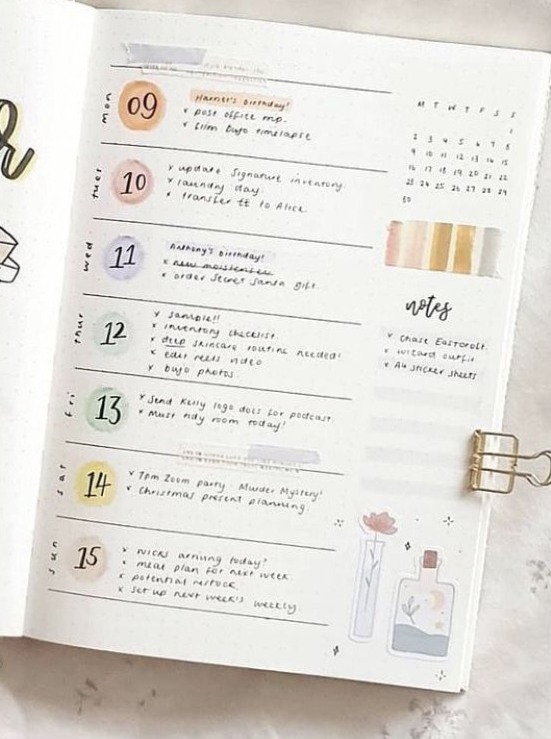 mon
09
Harriet's Birthday!
x post office trip.
x film bujo timelapse
tues
10
x update signature inventory.
x laundry day.
x transfer ££ to Alice.
wed
11
Anthony's Birthday!
x new moisteriser
x order Secret Santa gift.
thur
12
x sample!!
x inventory checklist.
x deep skincare routine needed!
x edit reels video
x bujo photos.
fri
13
x Send Kelly logo docs for podcast.
x Must tidy room today!
sat
14
x 7pm Zoom party - Murder Mystery!
x Christmas present planning.
sun
15
x arriving today!
x meal plan for next week.
x potential restock
x set up next week's weekly
M T W T F S S
1
2 3 4 5 6 7 8
9 10 11 12 13 14 15
16 17 18 19 20 21 22
23 24 25 26 27 28 29
30
notes
x chase Eastcroft.
x wizard outfit
x A4 sticker sheets